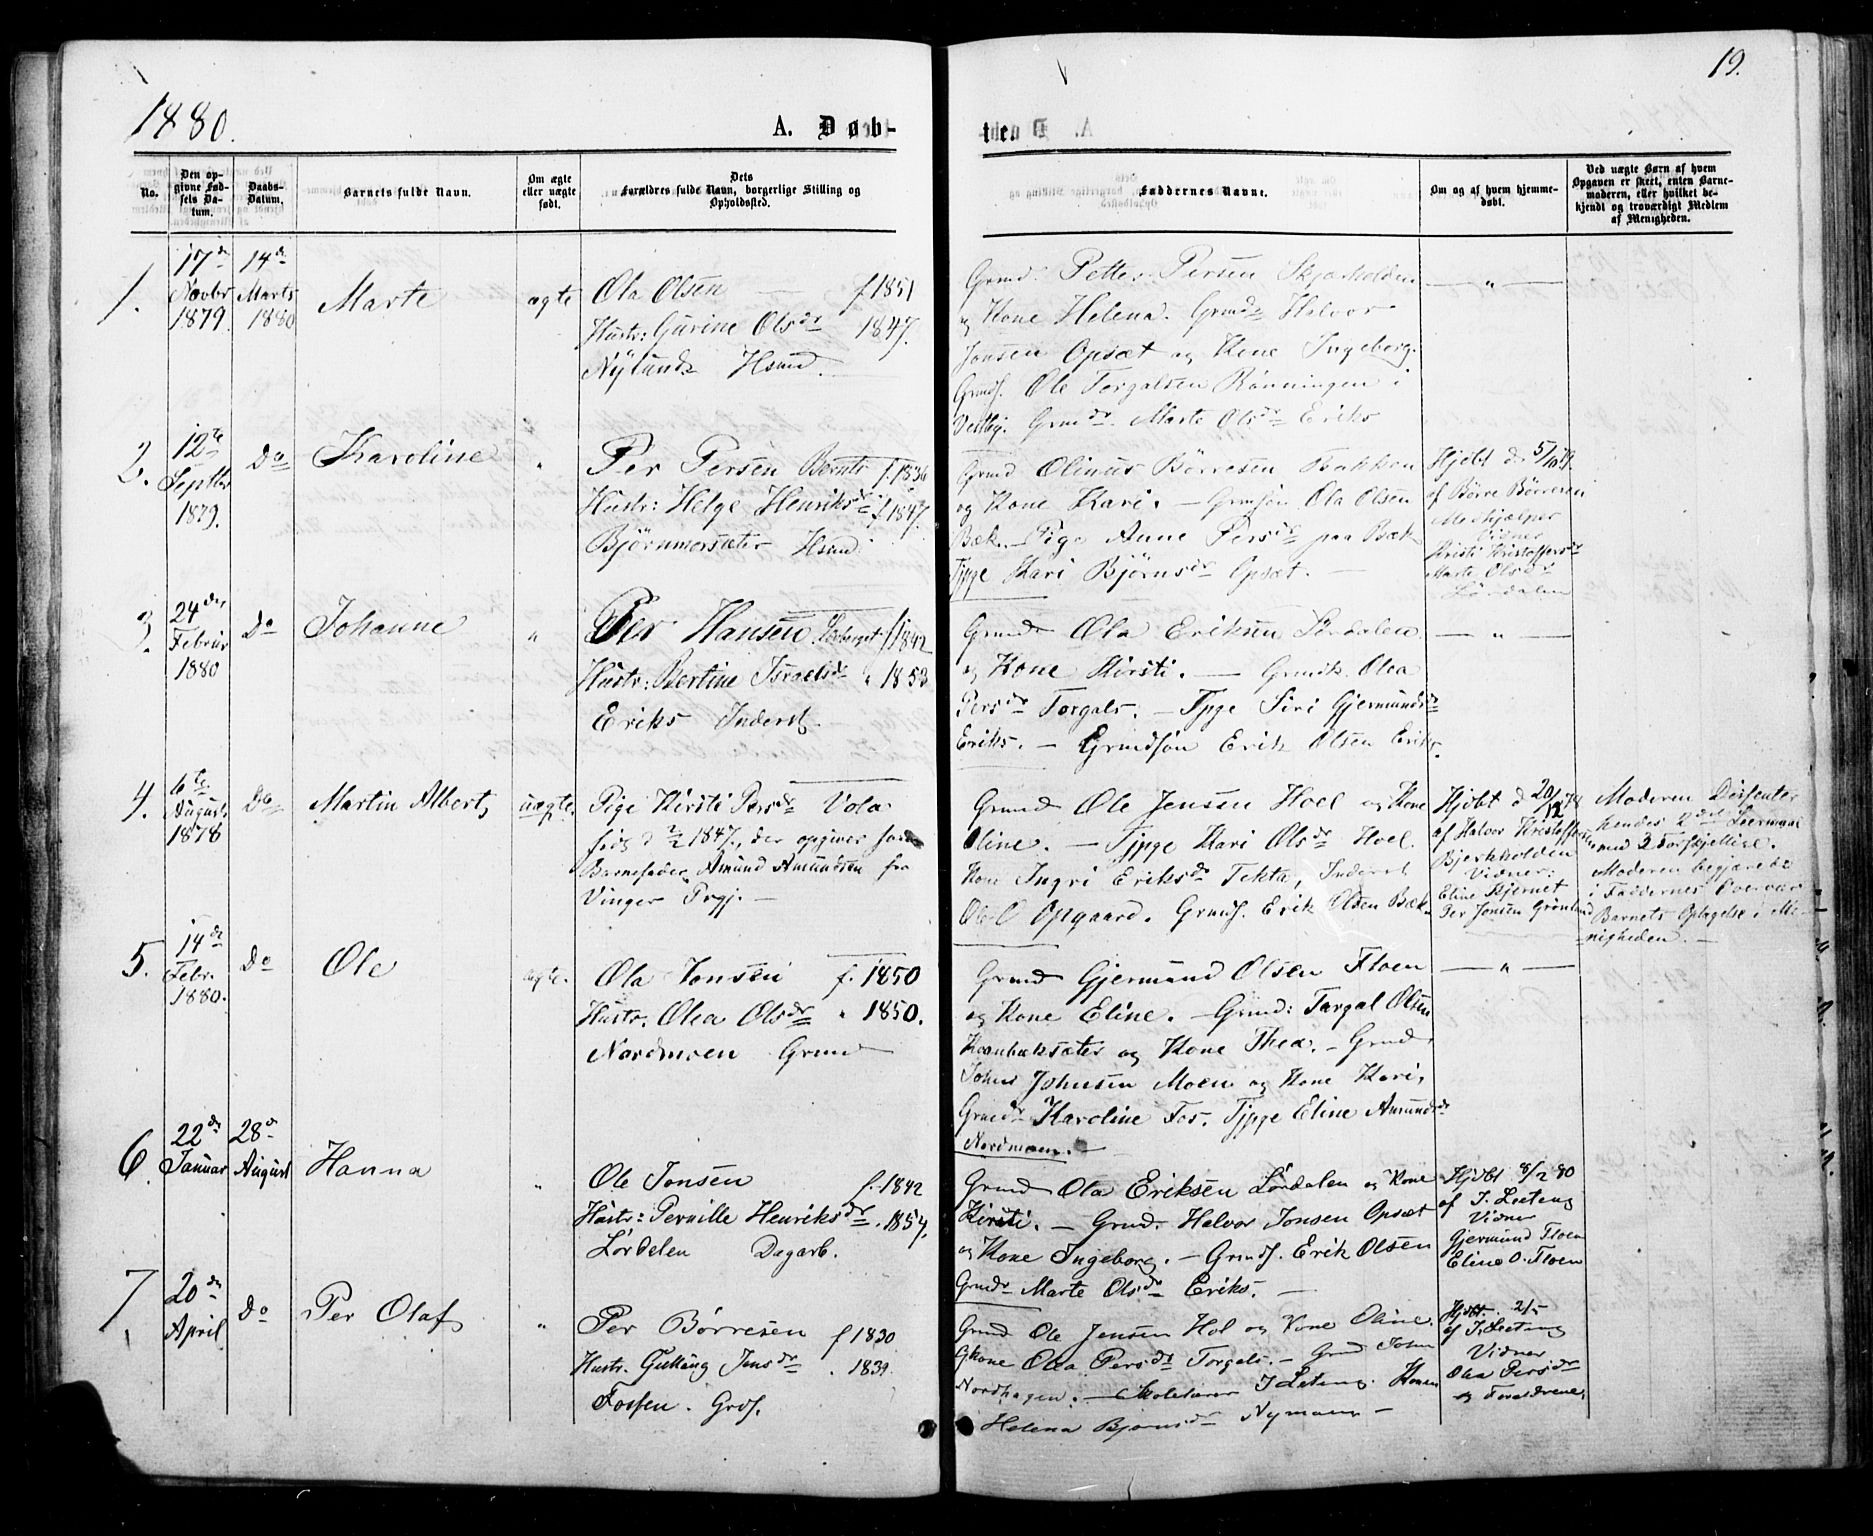 1880.
A. Døb-
No.
Den op-
givne Fød-
sels Da-
tum.
Daabs-
Datum.
Barnets fulde Navn.
Om ægte
eller uægte
født.
Dets
Forældres fulde Navn, borgerlige Stilling og
Opholdssted.
1.
17de
Novbr
1879.
14de
Marts
1880
Marte
ægte
Ola Olsen — f. 1851
Hustr: Gurine Olsdr 1847.
Nylund Hsmd.
2.
12te
Septbr
1879.
Do
Karoline
"
Per Persen Bernts f. 1836
Hustr: Helge Henriksdr f 1847.
Bjørnmorsæter Hsmd.
3.
24de
Februar
1880
Do
Johanne
"
Per Hansen f 1842
Hustr: Bertine Israelsdr " 1853
Eriks Inderst.
4.
6te
August
1878
Do
Martin Albert,
uægte.
Pige Kirsti Persdr Vola
født d 2/2 1847., der opgiver som
Barnefader Amund Amundsen fra
Vinger Prgj. —
5.
14de
Febr.
1880.
Do
Ole
ægte.
Ola Jonsen f. 1850
Hustr. Olea Olsdr " 1850.
Nordmoen Grmd
6.
22de
Januar
28de
August
Hanna
"
Ole Jonsen f. 1842
Hustr: Pernille Henriksdr . 1854.
Lørdalen Dagarb.
7.
20de
April
Do
Per Olaf
"
Per Børresen f 1830
Hustr. Gulling Jensdr . 1839
Fossen. Grds.
19.
te.
Faddernes Navne.
Om og af hvem hjemme-
døbt.
Ved uægte Børn af hvem
Opgaven er skeet, enten Barne-
moderen, eller hvilket be-
kjendt og troværdigt Medlem
af Menigheden.
Grmd. Petter Persen Skjærholden
og Kone Helena. Grmd Halvor
Jonsen Opsæt og Kone Ingeborg.
Grmds. Ole Torgalsen Rønningen i
Vestby. Grmdr. Marte Olsdr Eriks
— " —
Grmd Olinus Børresen Bakken
og Kone Kari. — Grmsøn Ola Olsen
Bæk. — Pige Anne Persdr paa Bæk
Tjpge Kari Bjørnsdr Opsæt. —
Hjdbt d. 5/10 79.
af Børre Børresen
Medhjælper
Vidner
Kirsti Kristoffersdr
Marte Olsdr
Lørdalen
Grmd Ola Eriksen Lørdalen
og Kone Kirsti. — Grmdk. Olea
Persdr Torgals. — Tjpge Siri Gjermundsdr
Eriks. — Grmdsøn Erik Olsen Eriks.
— " —
Grmd Ole Jensen Hoel og Kone
Oline. — Tjpge Kari Olsdr Hoel.
Kone Ingri Eriksdr Tekta, Inderst
Ole O Opgaard. Grmds. Erik Olsen Bæk.
Hjdbt d 20/12 78
af Halvor Kristoffersen
Bjerkholden
Vidner:
Eline Kjernet
Per Jonsen Grønlund
Moderen Dissenter
hendes 2det Leiermaal
med 2 Forskjellige.
Moderen begjærede
i Faddernes Overvær
Barnets Optagelse i Me-
nigheden. —
Grmd Gjermund Olsen Floen
og Kone Eline. — Grmd: Torgal Olsen
og Kone Thea. — Grmd.
Johns Johnsen Moen og Kone Kari,
Grmdr Karoline Fos. Tjpge Eline Amundsdr
Nordmoen. —
— " —
Grmd Ola Eriksen Lørdalen og Kone
Kirsti. — Grmd. Halvor Jonsen Opsæt
og Kone Ingeborg. — Grmds. Erik Olsen
Grmdr Marte Olsdr Eriks. —
Hjdbt 8/2 80
af J. Leeteng
Vidner
Gjermund Floen
Eline O. Floen
Grmd Ole Jensen Hol og Kone Oline,
Gkone Olea Persdr Torgals. — Grmd John
Nordhagen. — Skolelærer J Leteng. Konen
Helena Bjørnsdr Nymoen —
Hjdbt. 2/5
af J. Leeteng
Vidner
Olea Persdr
og Forældrene.